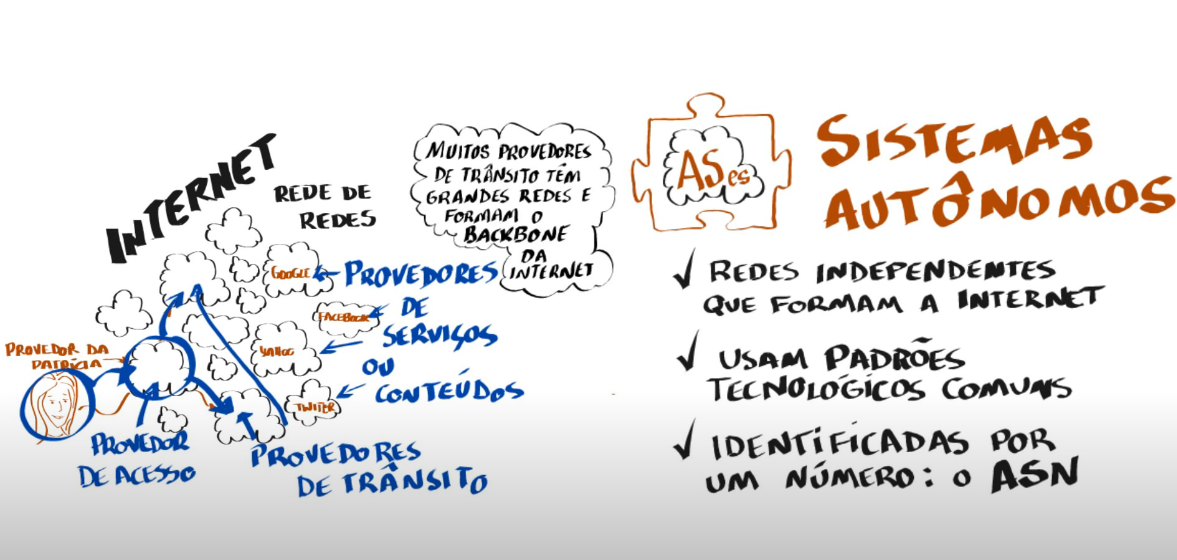 INTERNET
REDE DE
REDES
MUITOS PROVEDORES
DE TRÂNSITO TÊM
GRANDES REDES E
FORMAM O
BACKBONE
DA
INTERNET
GOOGLE
FACEBOOK
YAHOO
TWITER
PROVEDORES
DE
SERVIÇOS
OU
CONTEÚDOS
PROVEDOR DA
PATRÍCIA
PROVEDOR
DE ACESSO
PROVEDORES
DE TRÂNSITO
ASes
SISTEMAS
AUTÔNOMOS
✓ REDES INDEPENDENTES
QUE FORMAM A INTERNET
✓ USAM PADRÕES
TECNOLÓGICOS COMUNS
✓ IDENTIFICADAS POR
UM NÚMERO: O ASN